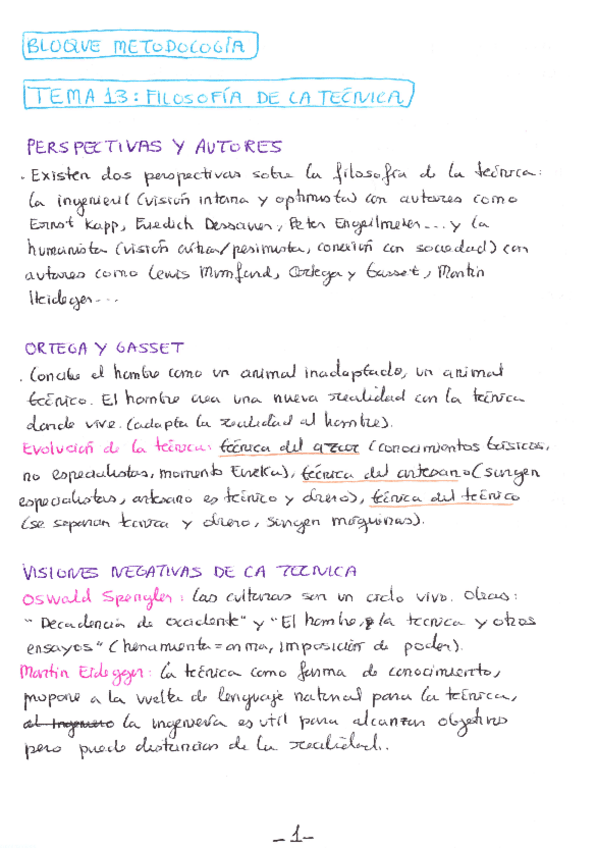 BLOQUE METODOLOGÍA
TEMA 13: FILOSOFÍA DE LA TECNICA
PERSPECTIVAS Y AUTORES
. Existen dos perspectivas sobre la filosofía de la técnica:
la ingenieril (visión interna y optimista) con autores como
Ernst Kapp, Friedich Dessauer, Peter Engeilmeier... y la
humanista (visión crítica/pesimista, conexión con sociedad) con
autores como Lewis Mumford, Ortega y Gasset, Martin
Heideger...
ORTEGA Y GASSET
. Concibe el hombre como un animal inadaptado, un animal
técnico. El hombre crea una nueva realidad con la técnica
donde vive. (adapta la realidad al hombre).
Evolución de la técnica: técnica del azar (conocimientos básicos,
no especialistas, momento Eureka), técnica del artesano (surgen
especialistas, artesano es técnico y obrero), técnica del técnico
(se separan tecnica y obrero, surgen máquinas).
VISIONES NEGATIVAS DE LA TECNICA
Oswald Spengler: Las culturas son un ciclo vivo. Obras:
"Decadencia de occidente" y "El hombre, la tecnica y otros
ensayos" (herramienta = arma, imposición de poder).
Martin Eidegger: la técnica como forma de conocimiento,
propone a la vuelta de lenguaje natural para la técnica,
al Ingeniero la ingeniería es util para alcanzar objetivo
pero puede distanciar de la realidad.
-1-